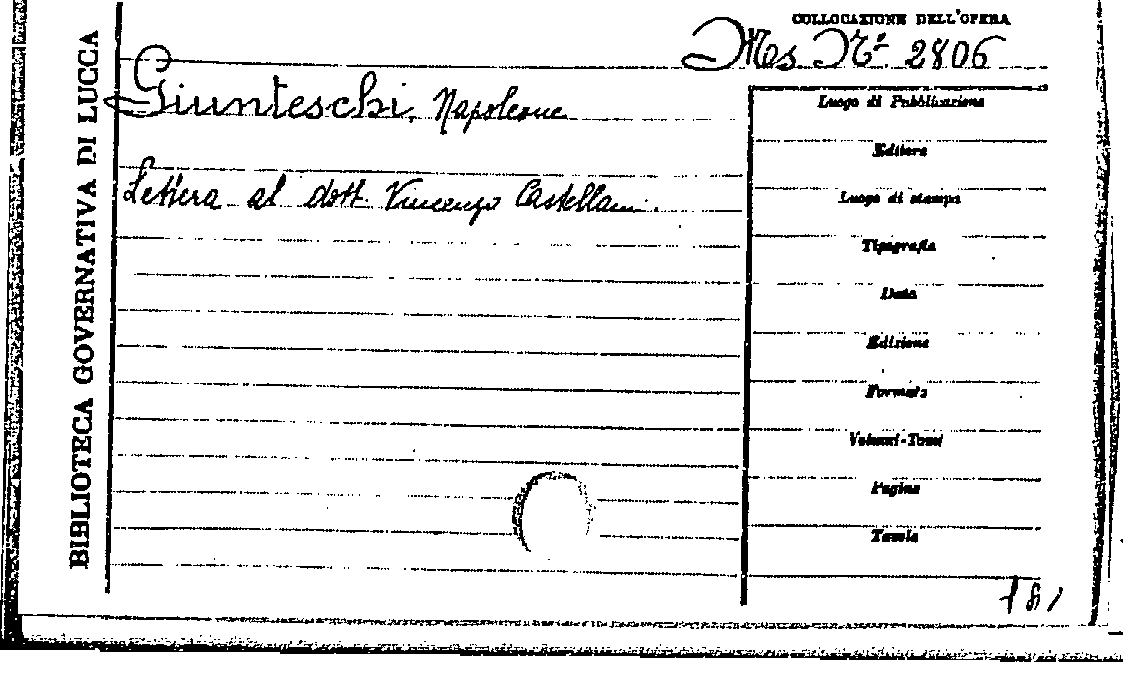 COLLOCAZIONE DELL'OPERA
Ms. N.º 2806
BIBLIOTECA GOVERNATIVA DI LUCCA
Giunteschi, Napoleone
Lettera al dott. Vincenzo Castellani.
Luogo di Pubblicazione
Editore
Luogo di stampa
Tipografia
Data
Edizione
Formato
Volumi-Tomi
Pagine
Tavole
181